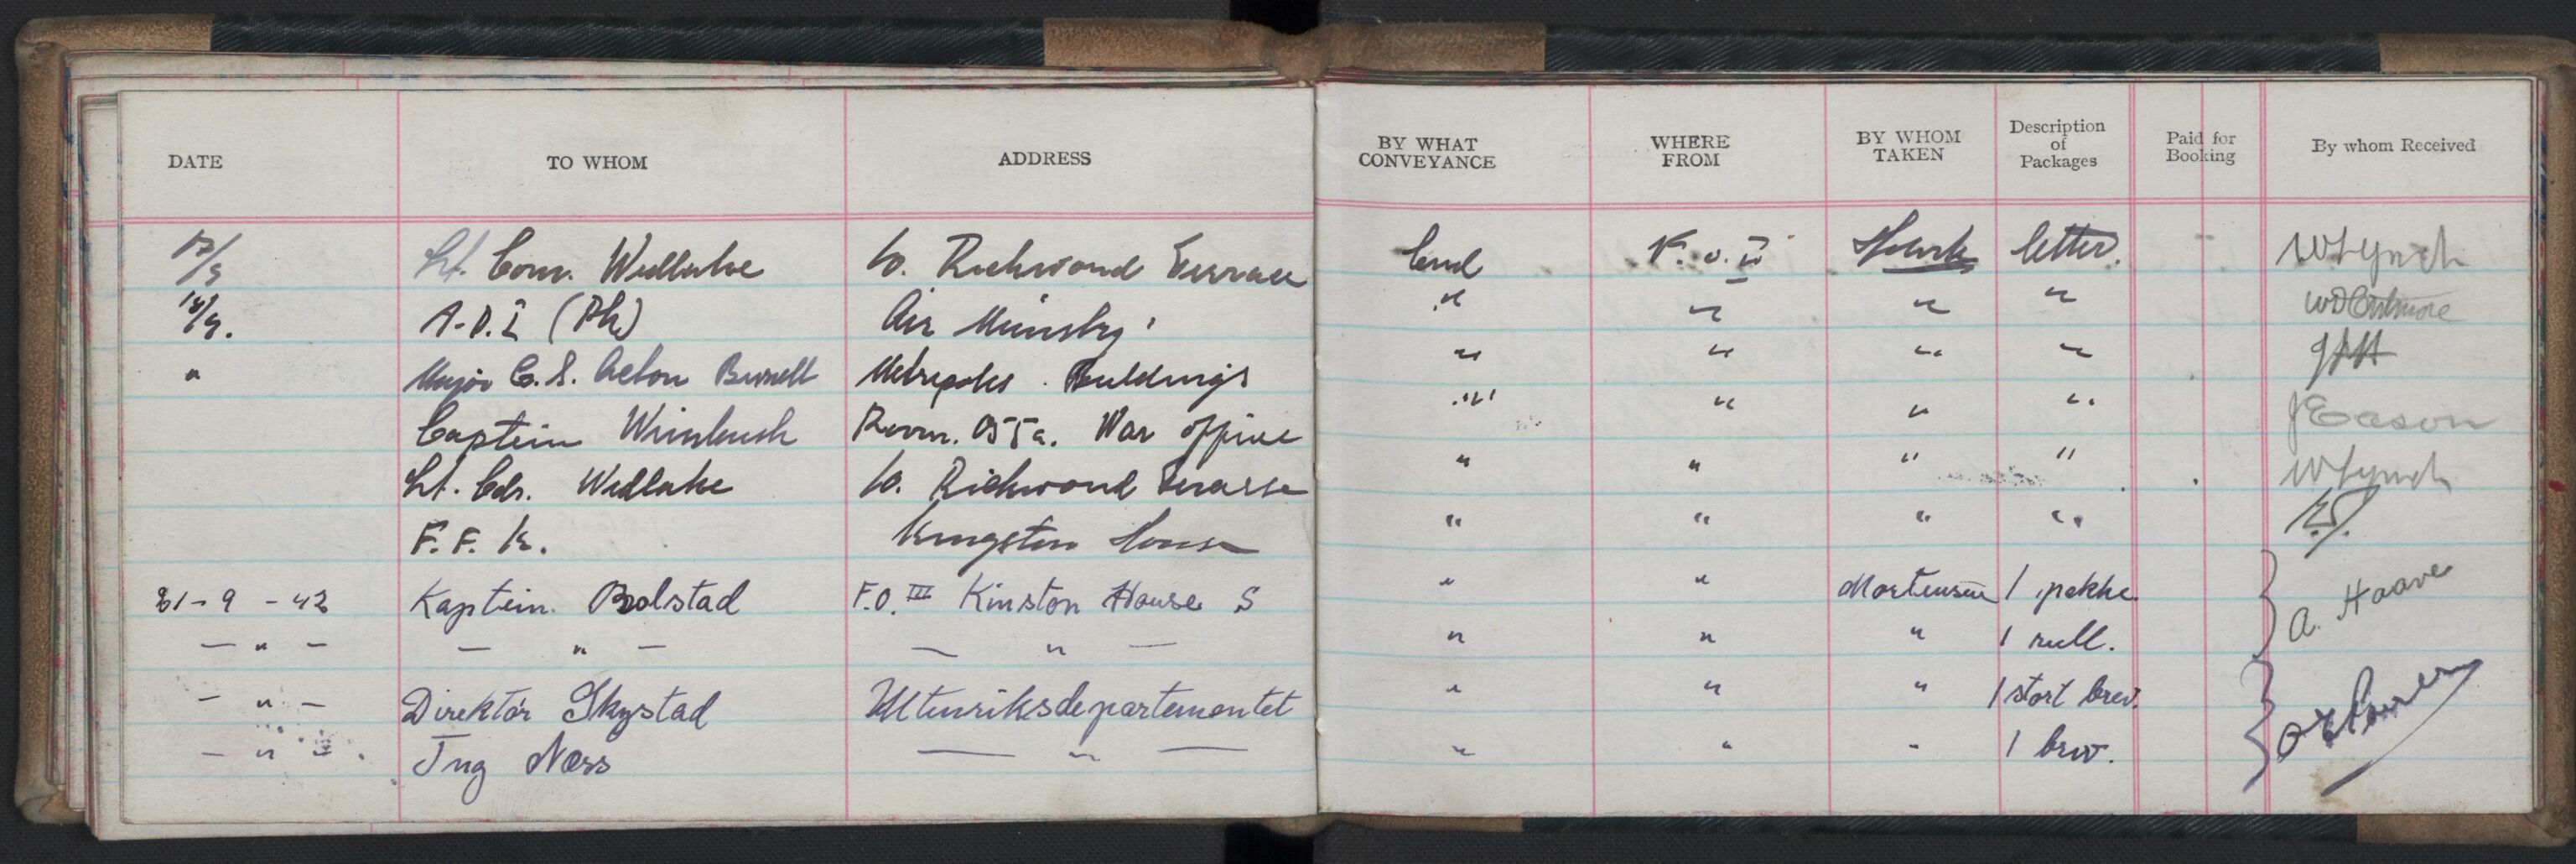 DATE TO WHOM ADDRESS BY WHAT CONVEYANCE WHERE FROM BY WHOM TAKEN Description of Packages Paid for Booking By whom Received
17/9 Lt. Com. Widlake 10. Richmond Terrace F.O. IV letter. W Lynch
18/9. A.D.I (Ph) Air Ministry " " " "
" Major C.S. Acton Burnell Metropoles Buildings " " " "
Captein Wimbush Room. 055a. War office " " " " J Eason
Lt. Cdr. Widlake 10. Richmond Terasse " " " " W Lynch
F.F.K. Kingston House " " " "
21-9-42 Kaptein. Bolstad F.O. III Kinston House S " " Mortensen 1 pakke. A. Haave
- " - - " - - " - " " " 1 rull.
- " - Direktør Skystad Utenriksdepartementet " " " 1 stort brev.
- " - Ing Næss - " - " " " 1 brev.